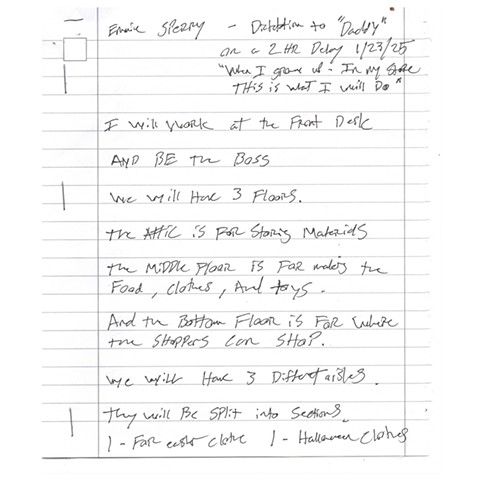 Emmie SPERRY - Dictation to "Daddy"
on a 2 HR Delay 1/23/25
"When I grow up - In my Store
THis is what I will Do"
I will work at the Front Desk
AND BE the Boss
We will Have 3 Floors.
the Attic is For Storing Materials
the MiDDLE Floor is For making the
Food, Clothes, And toys.
And the Bottom Floor is For where
the SHoppers Can SHoP.
We will Have 3 Different aisles.
They will Be SPLit into Sections.
1 - For easter clothe 1 - Halloween Clothes